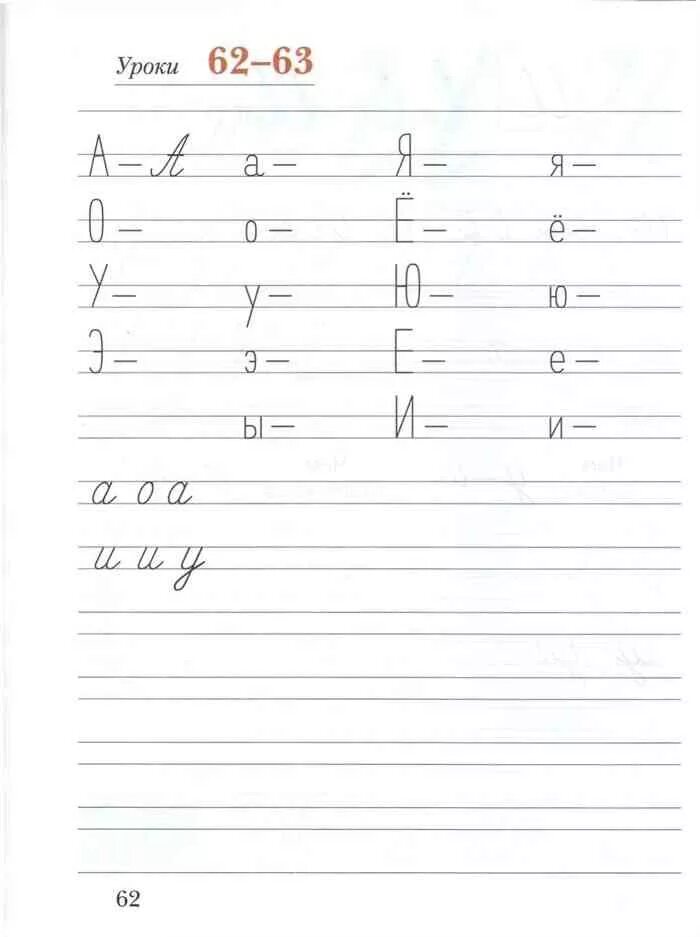 Уроки 62–63
А – А а – Я – я –
О – о – Ё – ё –
У – у – Ю – ю –
Э – э – Е – е –
ы – И – и –
а о а
и и у
62